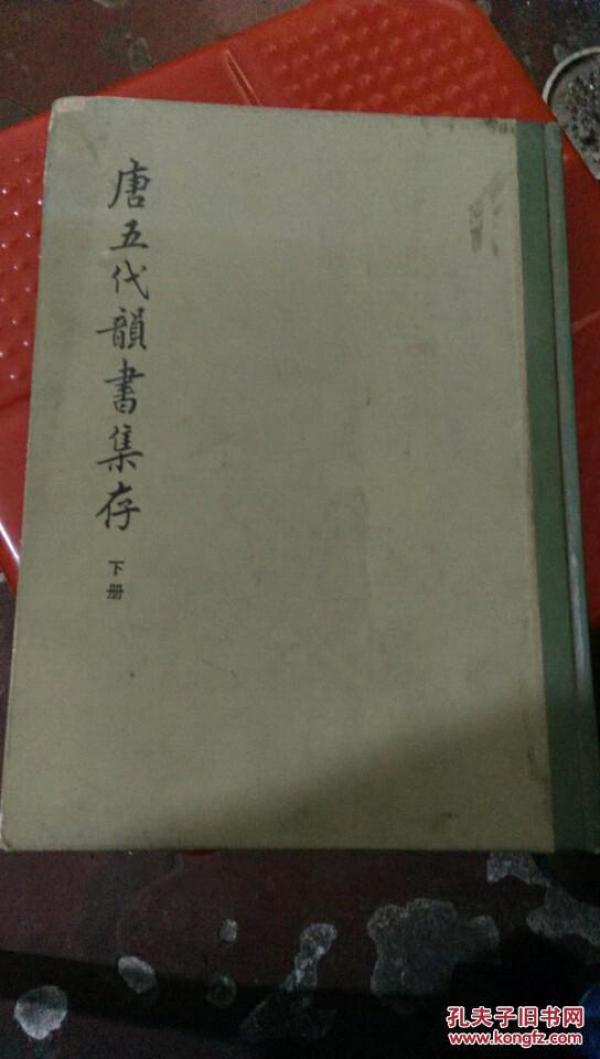 唐五代韻書集存
下册
孔夫子旧书网
www.kongfz.com